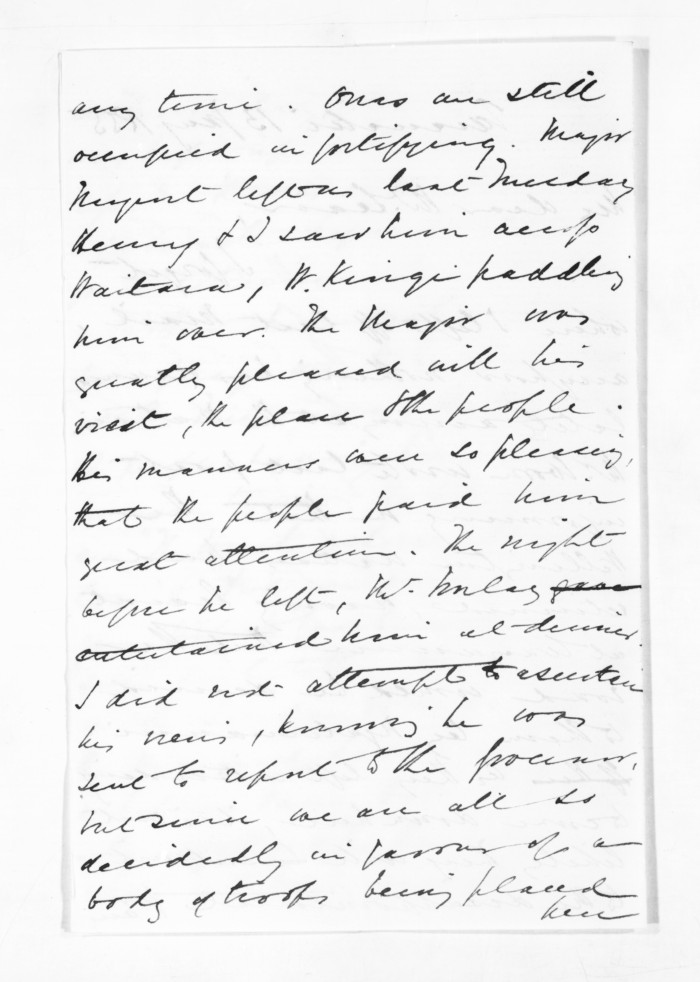 any time. Onas are still
occupied in fortifying. Major
Nugent left us last Tuesday
Henry & I saw him across
Waitara, W. Kingi paddling
him over. The Major was
greatly pleased with his
visit, the place & the people.
His manners were so pleasing,
that the people paid him
great attention. The night
before he left, Mr. Turton gave
entertained him at dinner.
I did not attempt to ascertain
his views, knowing he was
sent to report to the Governor,
but since we are all so
decidedly in favour of a
body of troops being placed
here